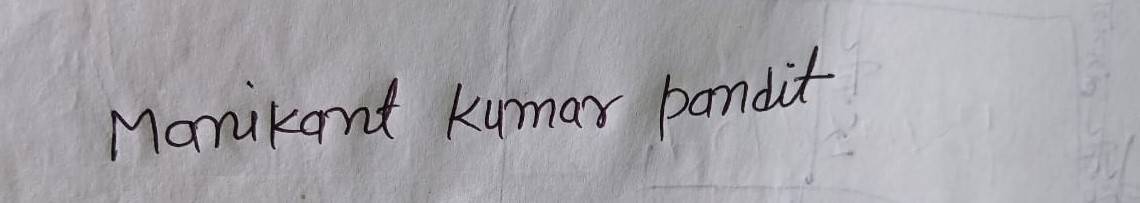 Manikant kumar pandit